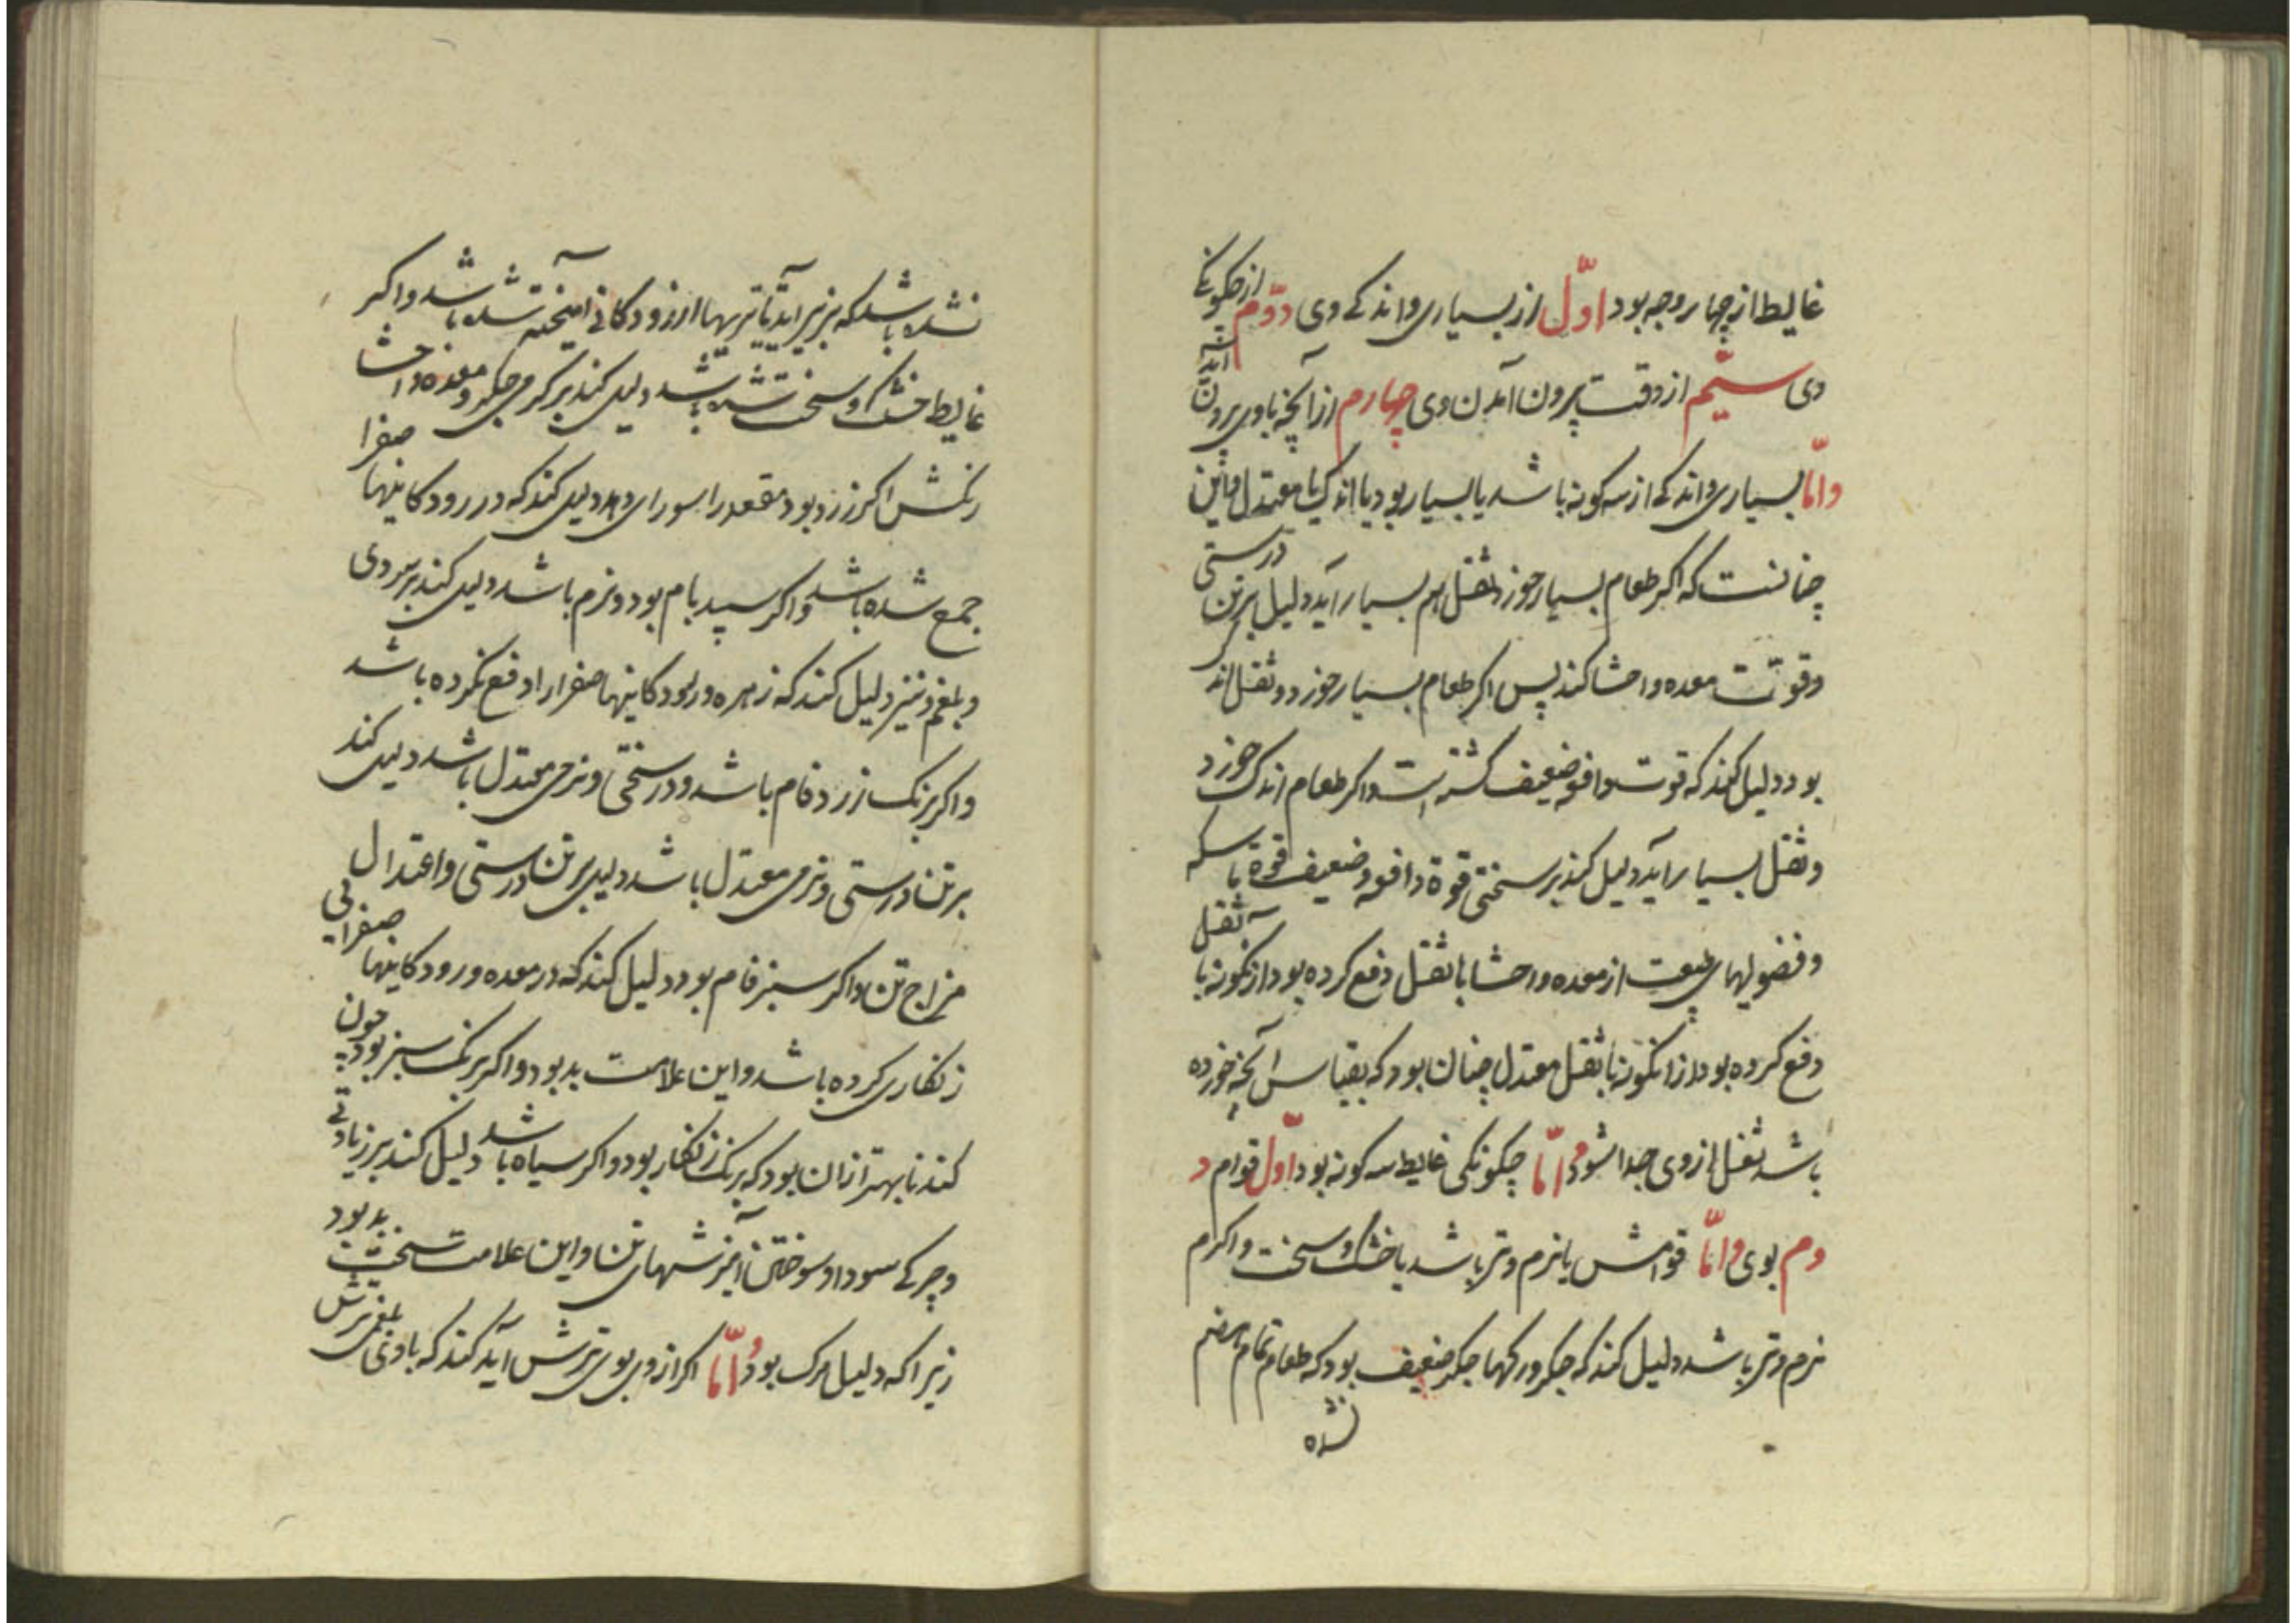 غایط از چهار وجه بود اوّل از بسیاری و اندکے وی دوّم از چکونکے
وی سیّم از وقت بیرون آمدن وی چهارم از آنچه با وی بیرون آید
وامّا بسیاری و اندکے از سه کونه باشد یا بسیار بود یا اندک یا معتدل و این
چنانست که اکر طعام بسیار خورد ثقل هم بسیار آید دلیل بر تن درستی
وقوّت معده و احشا کند پس اکر طعام بسیار خورد و ثقل اند
بود دلیل کند که قوت دافعه ضعیف کشته است و اکر طعام اندک خورد
و ثقل بسیار آید دلیل کند بر سختی قوة دافعه و ضعیف قوة ماسکه
و فضولیهای از معده و احشا با ثقل دفع کرده بود از کونه با ثقل
دفع کرده بود از انکونه با ثقل معتدل چنان بود که بقیاس آنچه خورده
باشد ثقل از وی جدا شود و امّا چکونکی غایط سه کونه بود اوّل قوام د
وم بوی و امّا قوامش یا نرم و تر باشد یا خشک و سخت و اکرم
نرم و تر باشد دلیل کند که جکر و رکهاء جکر ضعیف بود که طعام تمام هضم
نشده
نشده باشد که بزیر آید تا تریها از رودکانی آمیخته شده باشد و اکر
غایط خشک و سخت شده باشد دلیل کند بر کرمی جکر و معده و احشا
رنکش اکر زرد بود مقعد را سوزای دهد دلیل کند که در رودکاینها صفرا
جمع شده باشد و اکر سپید بام بود و نرم باشد دلیل کند بر سردی
و بلغم و نیز دلیل کند که زهره و رودکاینها صفرا را دفع نکرده باشد
و اکر برنک زرد فام باشد و در سختی و نرمی معتدل باشد دلیل کند
بر تنادرستی و نرمی معتدل باشد دلیل بر تن درستی و اعتدال
مزاج تن و اکر سبز فام بود دلیل کند که در معده و رودکاینها صفرایی
زنکاری کرده باشد و این علامت بد بود و اکر برنک سبز بود چون
کندنا بهتر از ان بود که برنک زنکار بود و اکر سیاه باشد دلیل کند بر زیادتی
و چرکے سودا و سوختن آمیزشهای تن و این علامت سخت بد بود
زیرا که دلیل مرک بود و امّا اکر از وی بوی ترش آید کند که با وی بلغمی ترش